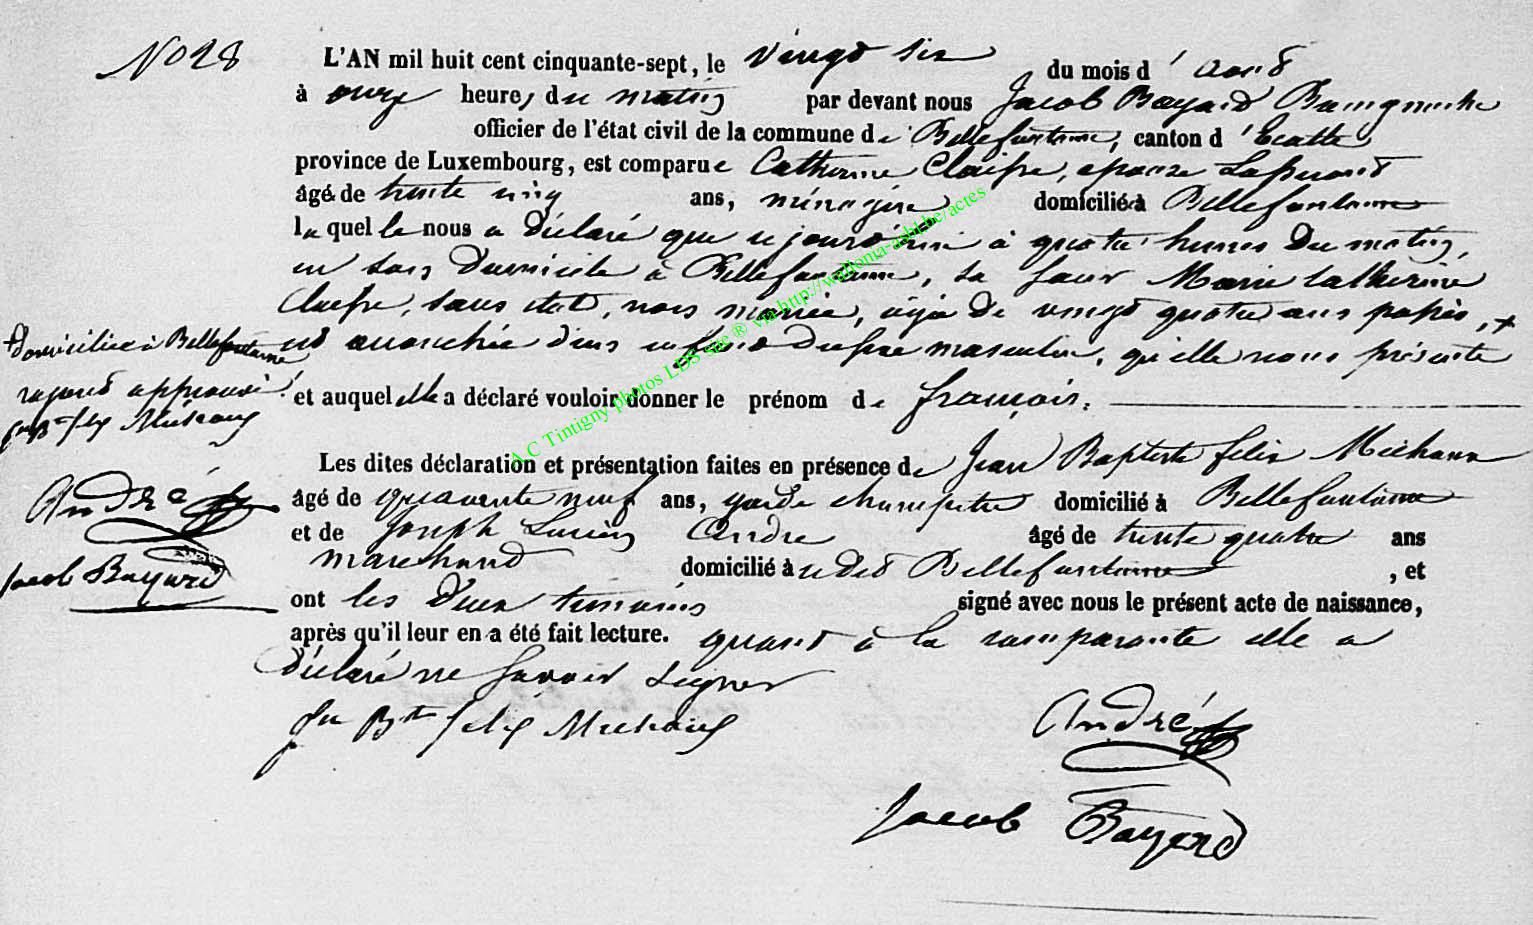 No 28
L'AN mil huit cent cinquante-sept, le vingt six du mois d'août
à onze heures du matin par devant nous Jacob Bayard Bourgmestre
officier de l'état civil de la commune de Bellefontaine, canton d'Etalle
province de Luxembourg, est comparue Catherine Claisse, épouse
âgé de trente cinq ans, ménagère domiciliée à Bellefontaine
laquelle nous a déclaré que ce jourd'hui à quatre heures du matin,
en son domicile à Bellefontaine, sa sœur Marie Catherine
Claisse, sans état, non mariée, âgée de vingt quatre ans passés, +
est accouchée d'un enfant du sexe masculin, qu'elle nous présente
et auquel elle a déclaré vouloir donner le prénom de françois.
Les dites déclaration et présentation faites en présence de Jean Baptiste félix Michaux
âgé de quarante neuf ans, garde champêtre domicilié à Bellefontaine
et de Joseph Lucien André âgé de trente quatre ans
marchand domicilié à udit Bellefontaine, et
ont les deux témoins signé avec nous le présent acte de naissance,
après qu'il leur en a été fait lecture. quant à la comparante elle a
déclaré ne savoir signer
Jn Bte félix Michaux
André
Jacob Bayard
+ domiciliée à Bellefontaine
renvoi approuvé
Jn Bte félix Michaux
André
Jacob Bayard
A.C Tintigny photos LDS site ® via http://wallonia-asbl.be/actes